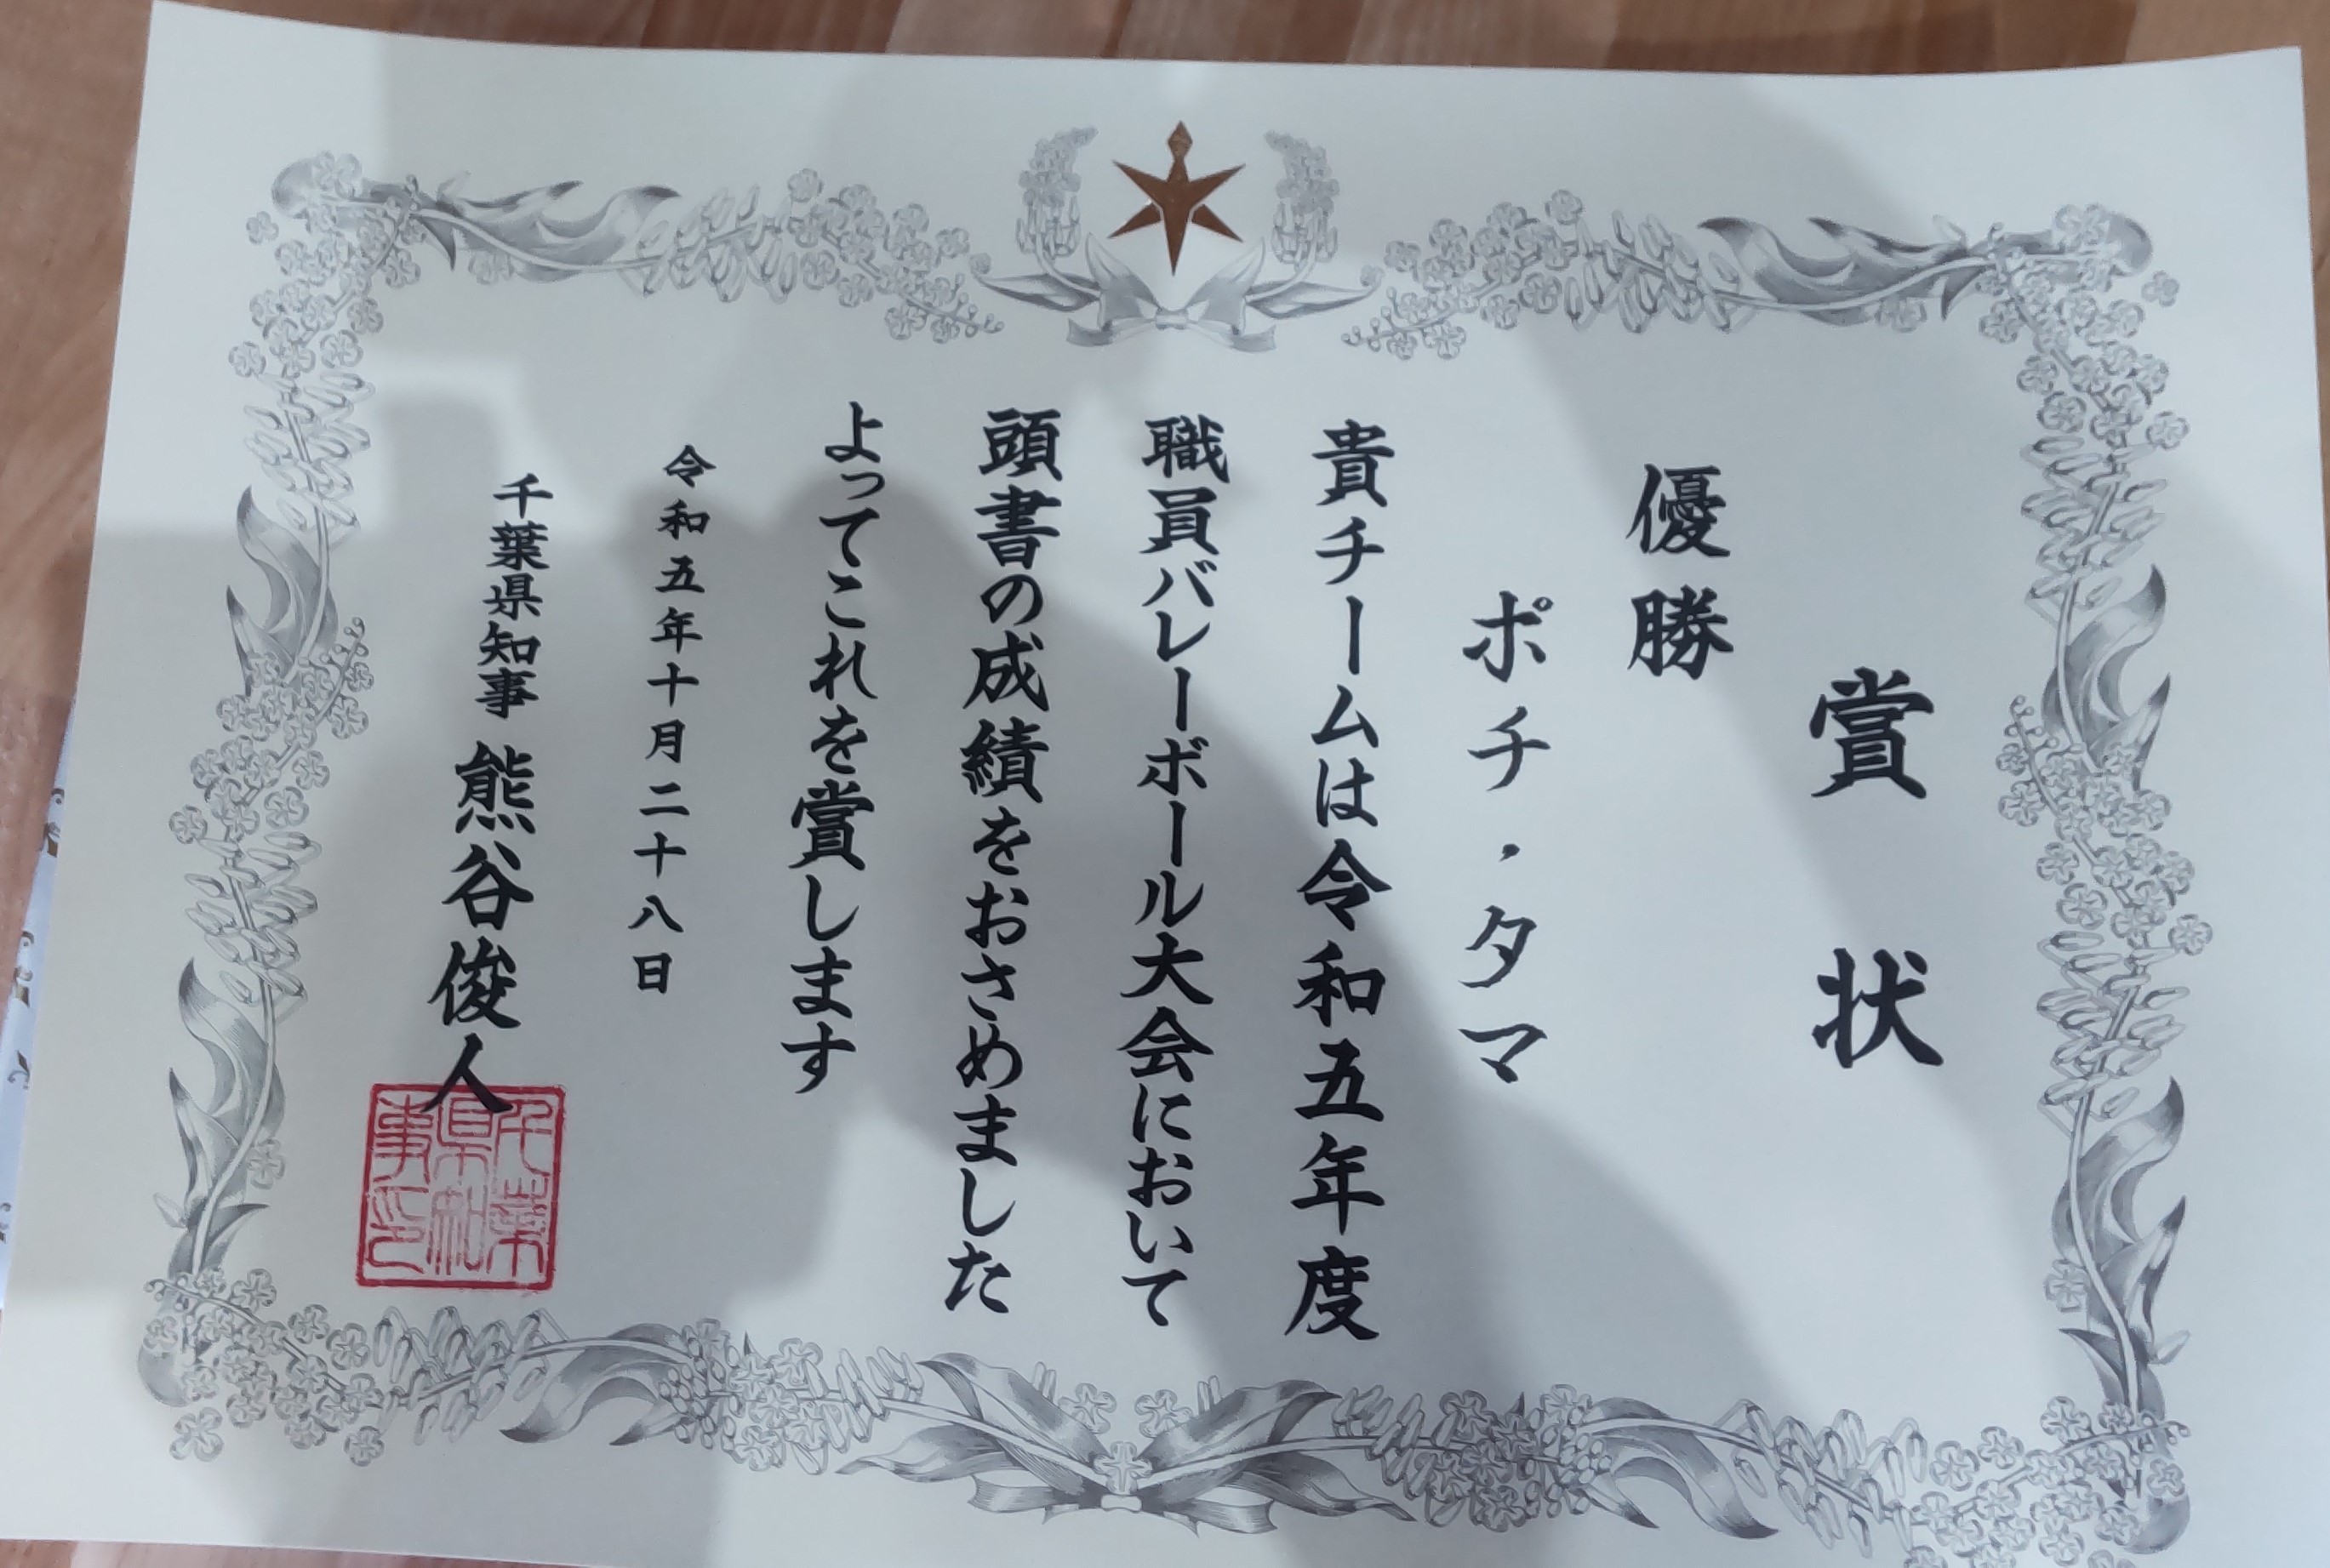 賞状
優勝
ポチ・タマ
貴チームは令和五年度
職員バレーボール大会において
頭書の成績をおさめました
よってこれを賞します
令和五年十月二十八日
千葉県知事 熊谷俊人
千葉県知事印